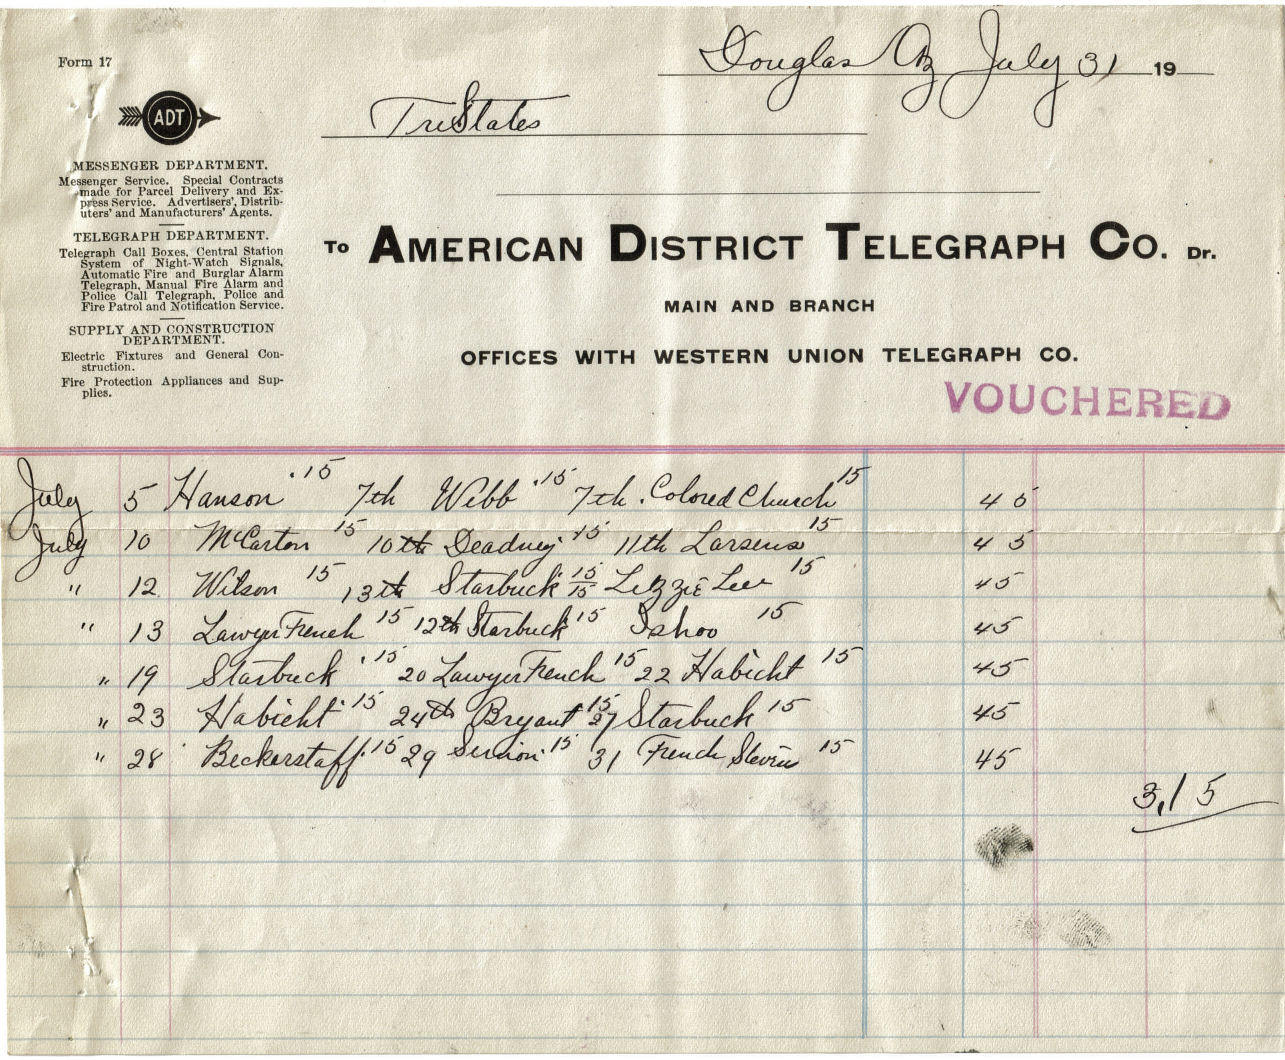 Form 17
Douglas Az July 31 19
ADT
TriStates
MESSENGER DEPARTMENT.
Messenger Service. Special Contracts
made for Parcel Delivery and Ex-
press Service. Advertisers', Distrib-
uters' and Manufacturers' Agents.
TELEGRAPH DEPARTMENT.
Telegraph Call Boxes, Central Station
System of Night-Watch Signals,
Automatic Fire and Burglar Alarm
Telegraph, Manual Fire Alarm and
Police Call Telegraph, Police and
Fire Patrol and Notification Service.
SUPPLY AND CONSTRUCTION
DEPARTMENT.
Electric Fixtures and General Con-
struction.
Fire Protection Appliances and Sup-
plies.
To AMERICAN DISTRICT TELEGRAPH CO. Dr.
MAIN AND BRANCH
OFFICES WITH WESTERN UNION TELEGRAPH CO.
VOUCHERED
July 5 Hanson .15 7th Webb .15 7th. Colored Church 15 45
July 10 McCarton 15 10th Deadney 15 11th Larsens 15 45
" 12 Wilson 15 13th Starbuck 15 15 Lizzie Lee 15 45
" 13 Lawyer French 15 12th Starbuck 15 Ishoo 15 45
" 19 Starbuck .15 20 Lawyer French 15 22 Habicht 15 45
" 23 Habicht .15 24th Bryant 15 27 Starbuck 15 45
" 28 Beckerstaff .15 29 15 31 French Stevens 15 45
3,15